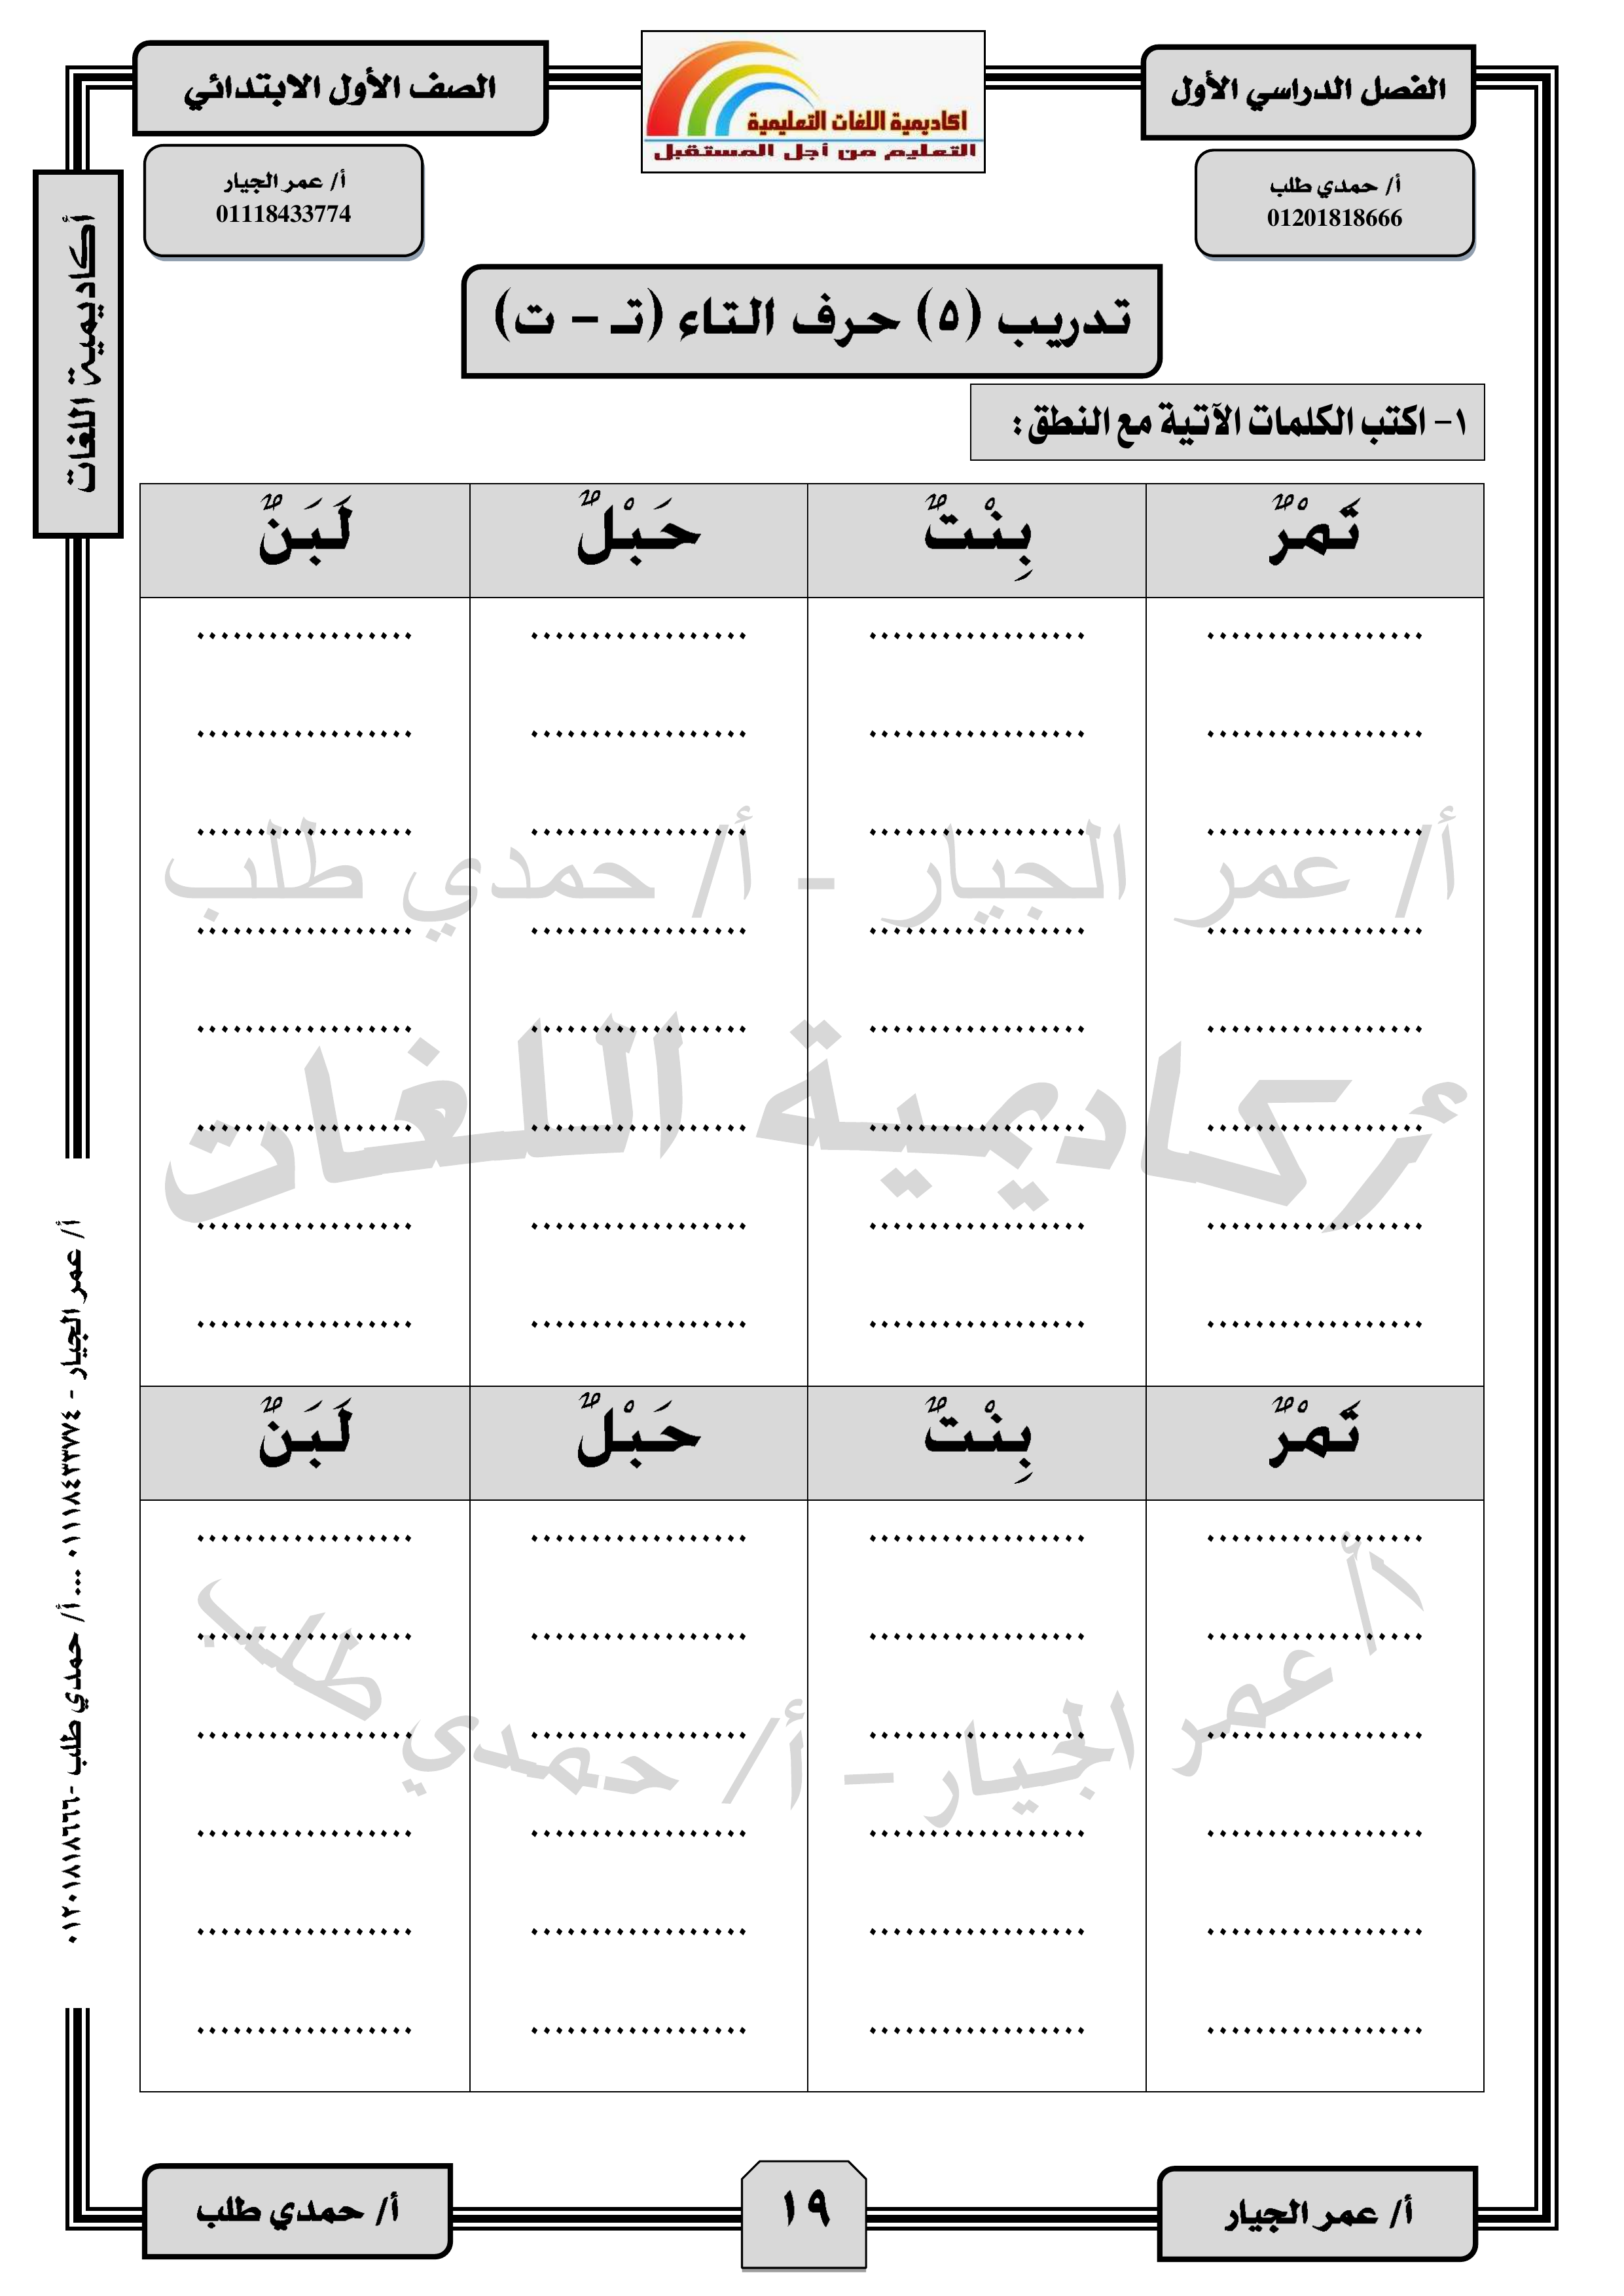 الفصل الدراسي الأول
اكاديمية اللغات التعليمية
التعليم من أجل المستقبل
الصف الأول الابتدائي
أ/ حمدي طلب
01201818666
أ/ عمر الجيار
01118433774
أكاديمية اللغات
تدريب (٥) حرف التاء (تـ – ت)
١- اكتب الكلمات الآتية مع النطق :
تَمْرٌ بِنْتٌ حَبْلٌ لَبَنٌ
.................. .................. .................. ..................
.................. .................. .................. ..................
.................. .................. .................. ..................
أ/ عمر الجيار - أ/ حمدي طلب
.................. .................. .................. ..................
.................. .................. .................. ..................
أكاديمية اللغات
.................. .................. .................. ..................
.................. .................. .................. ..................
.................. .................. .................. ..................
تَمْرٌ بِنْتٌ حَبْلٌ لَبَنٌ
.................. .................. .................. ..................
.................. .................. .................. ..................
أ/ عمر الجيار – أ/ حمدي طلب
.................. .................. .................. ..................
.................. .................. .................. ..................
.................. .................. .................. ..................
.................. .................. .................. ..................
أ/ عمر الجيار - ٠١١١٨٤٣٣٧٧٤ ... أ/ حمدي طلب -٠١٢٠١٨١٨٦٦٦
أ/ عمر الجيار
١٩
أ/ حمدي طلب